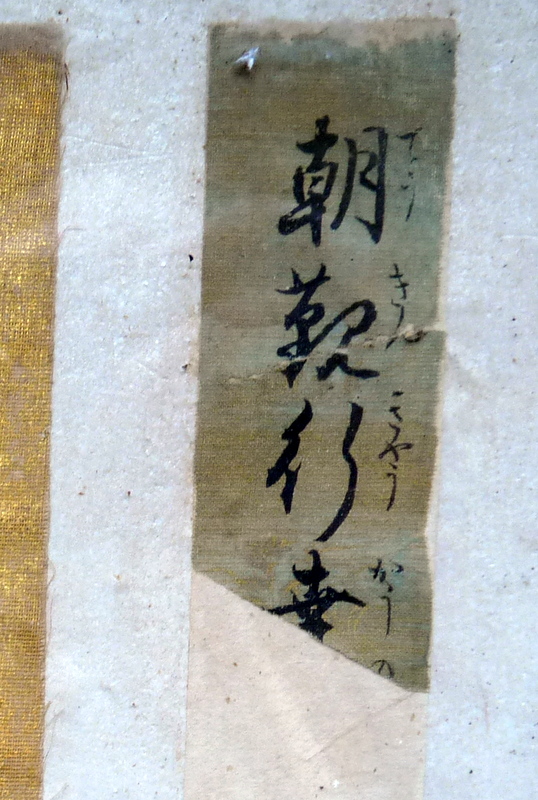 朝覲行幸
てうきんきやうかうの